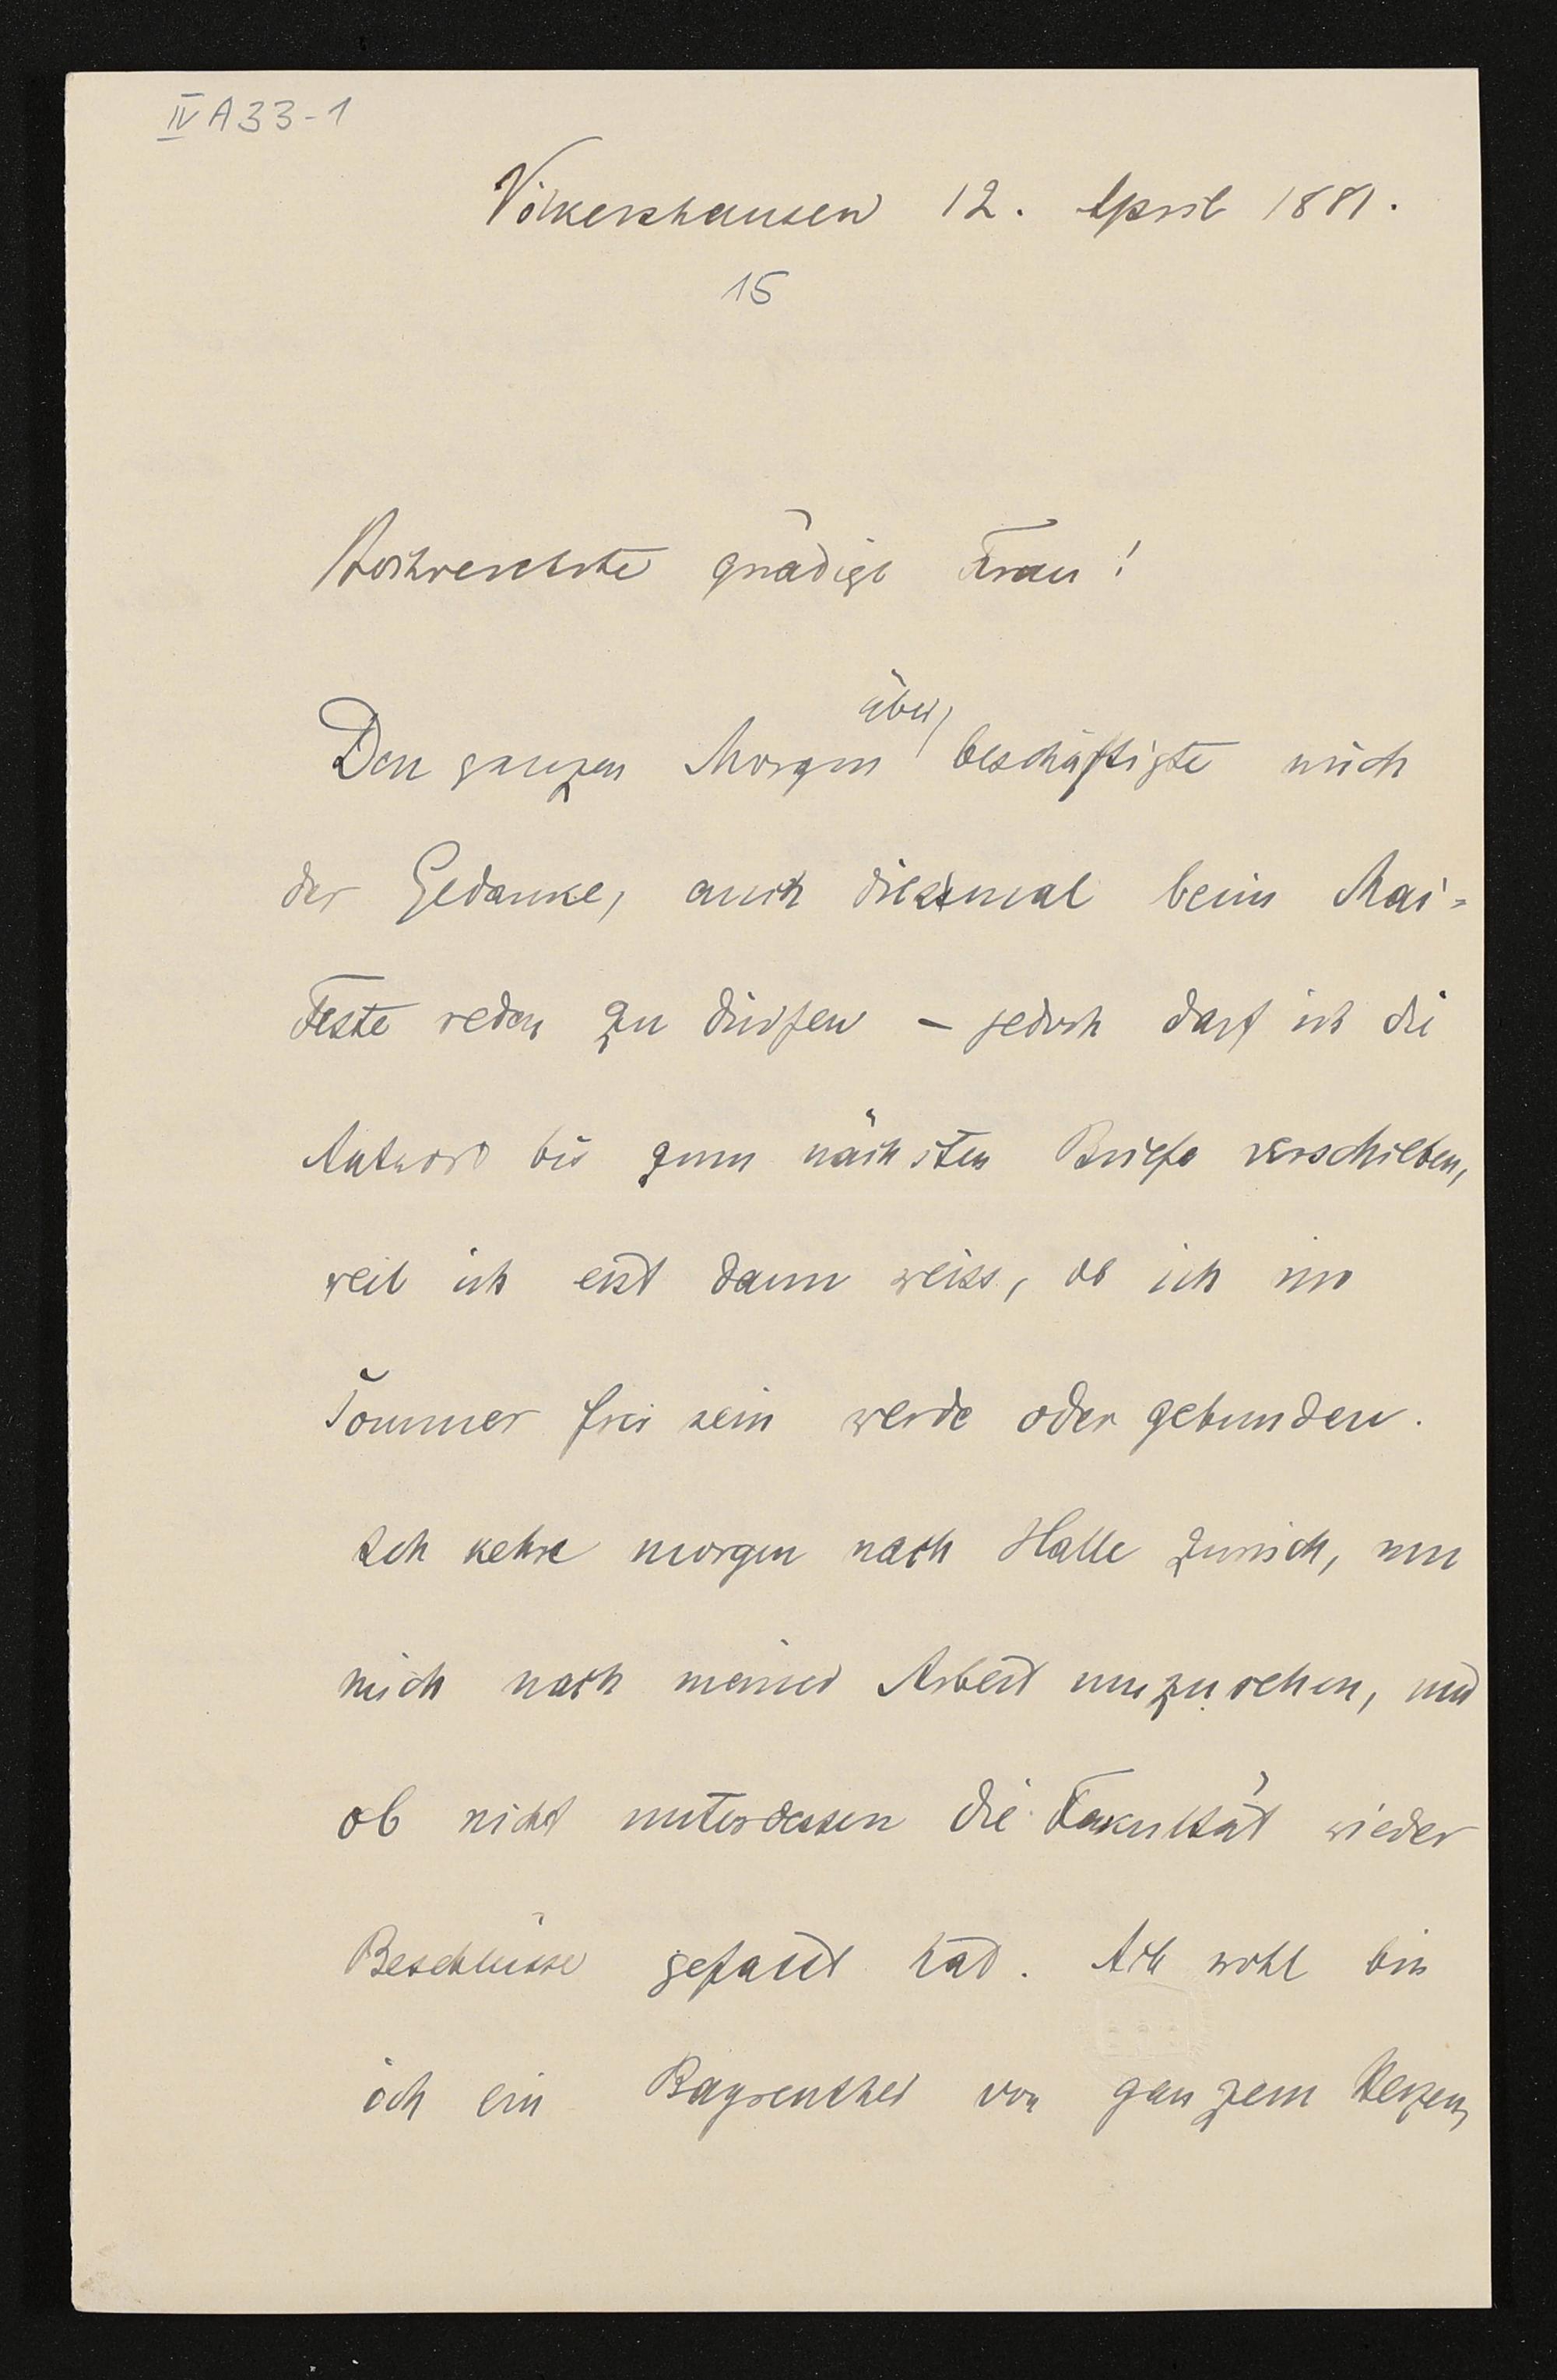 IV A 33-1
Völkershausen 12. April 1881.
15
Hochverehrte gnädige Frau!
über
Den ganzen Morgen beschäftigte mich
der Gedanke, auch diesmal beim Mai-
Feste reden zu dürfen – jedoch darf ich die
Antwort bis zum nächsten Briefe verschieben,
weil ich erst dann weiss, ob ich im
Sommer frei sein werde oder gebunden.
Ich kehre morgen nach Halle zurück, um
mich nach meiner Arbeit umzusehen, und
ob nicht unterdessen die Fakultät wieder
Beschlüsse gefasst hat. Ach wohl bin
ich ein Bayreuther von ganzem Herzen,